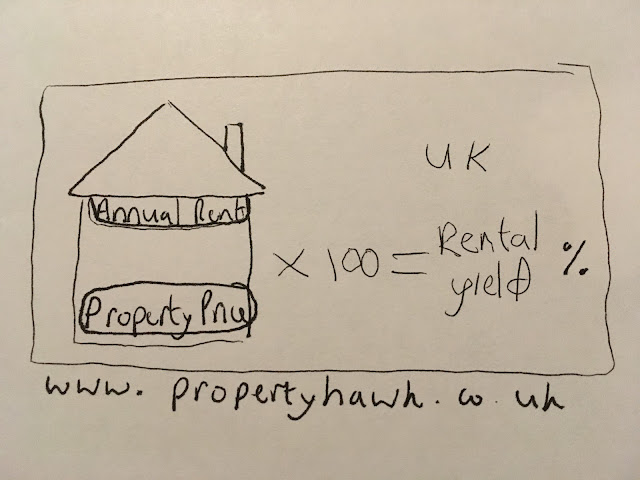 UK
Annual Rent
Property Price
× 100 = Rental yield %
www.propertyhawk.co.uk